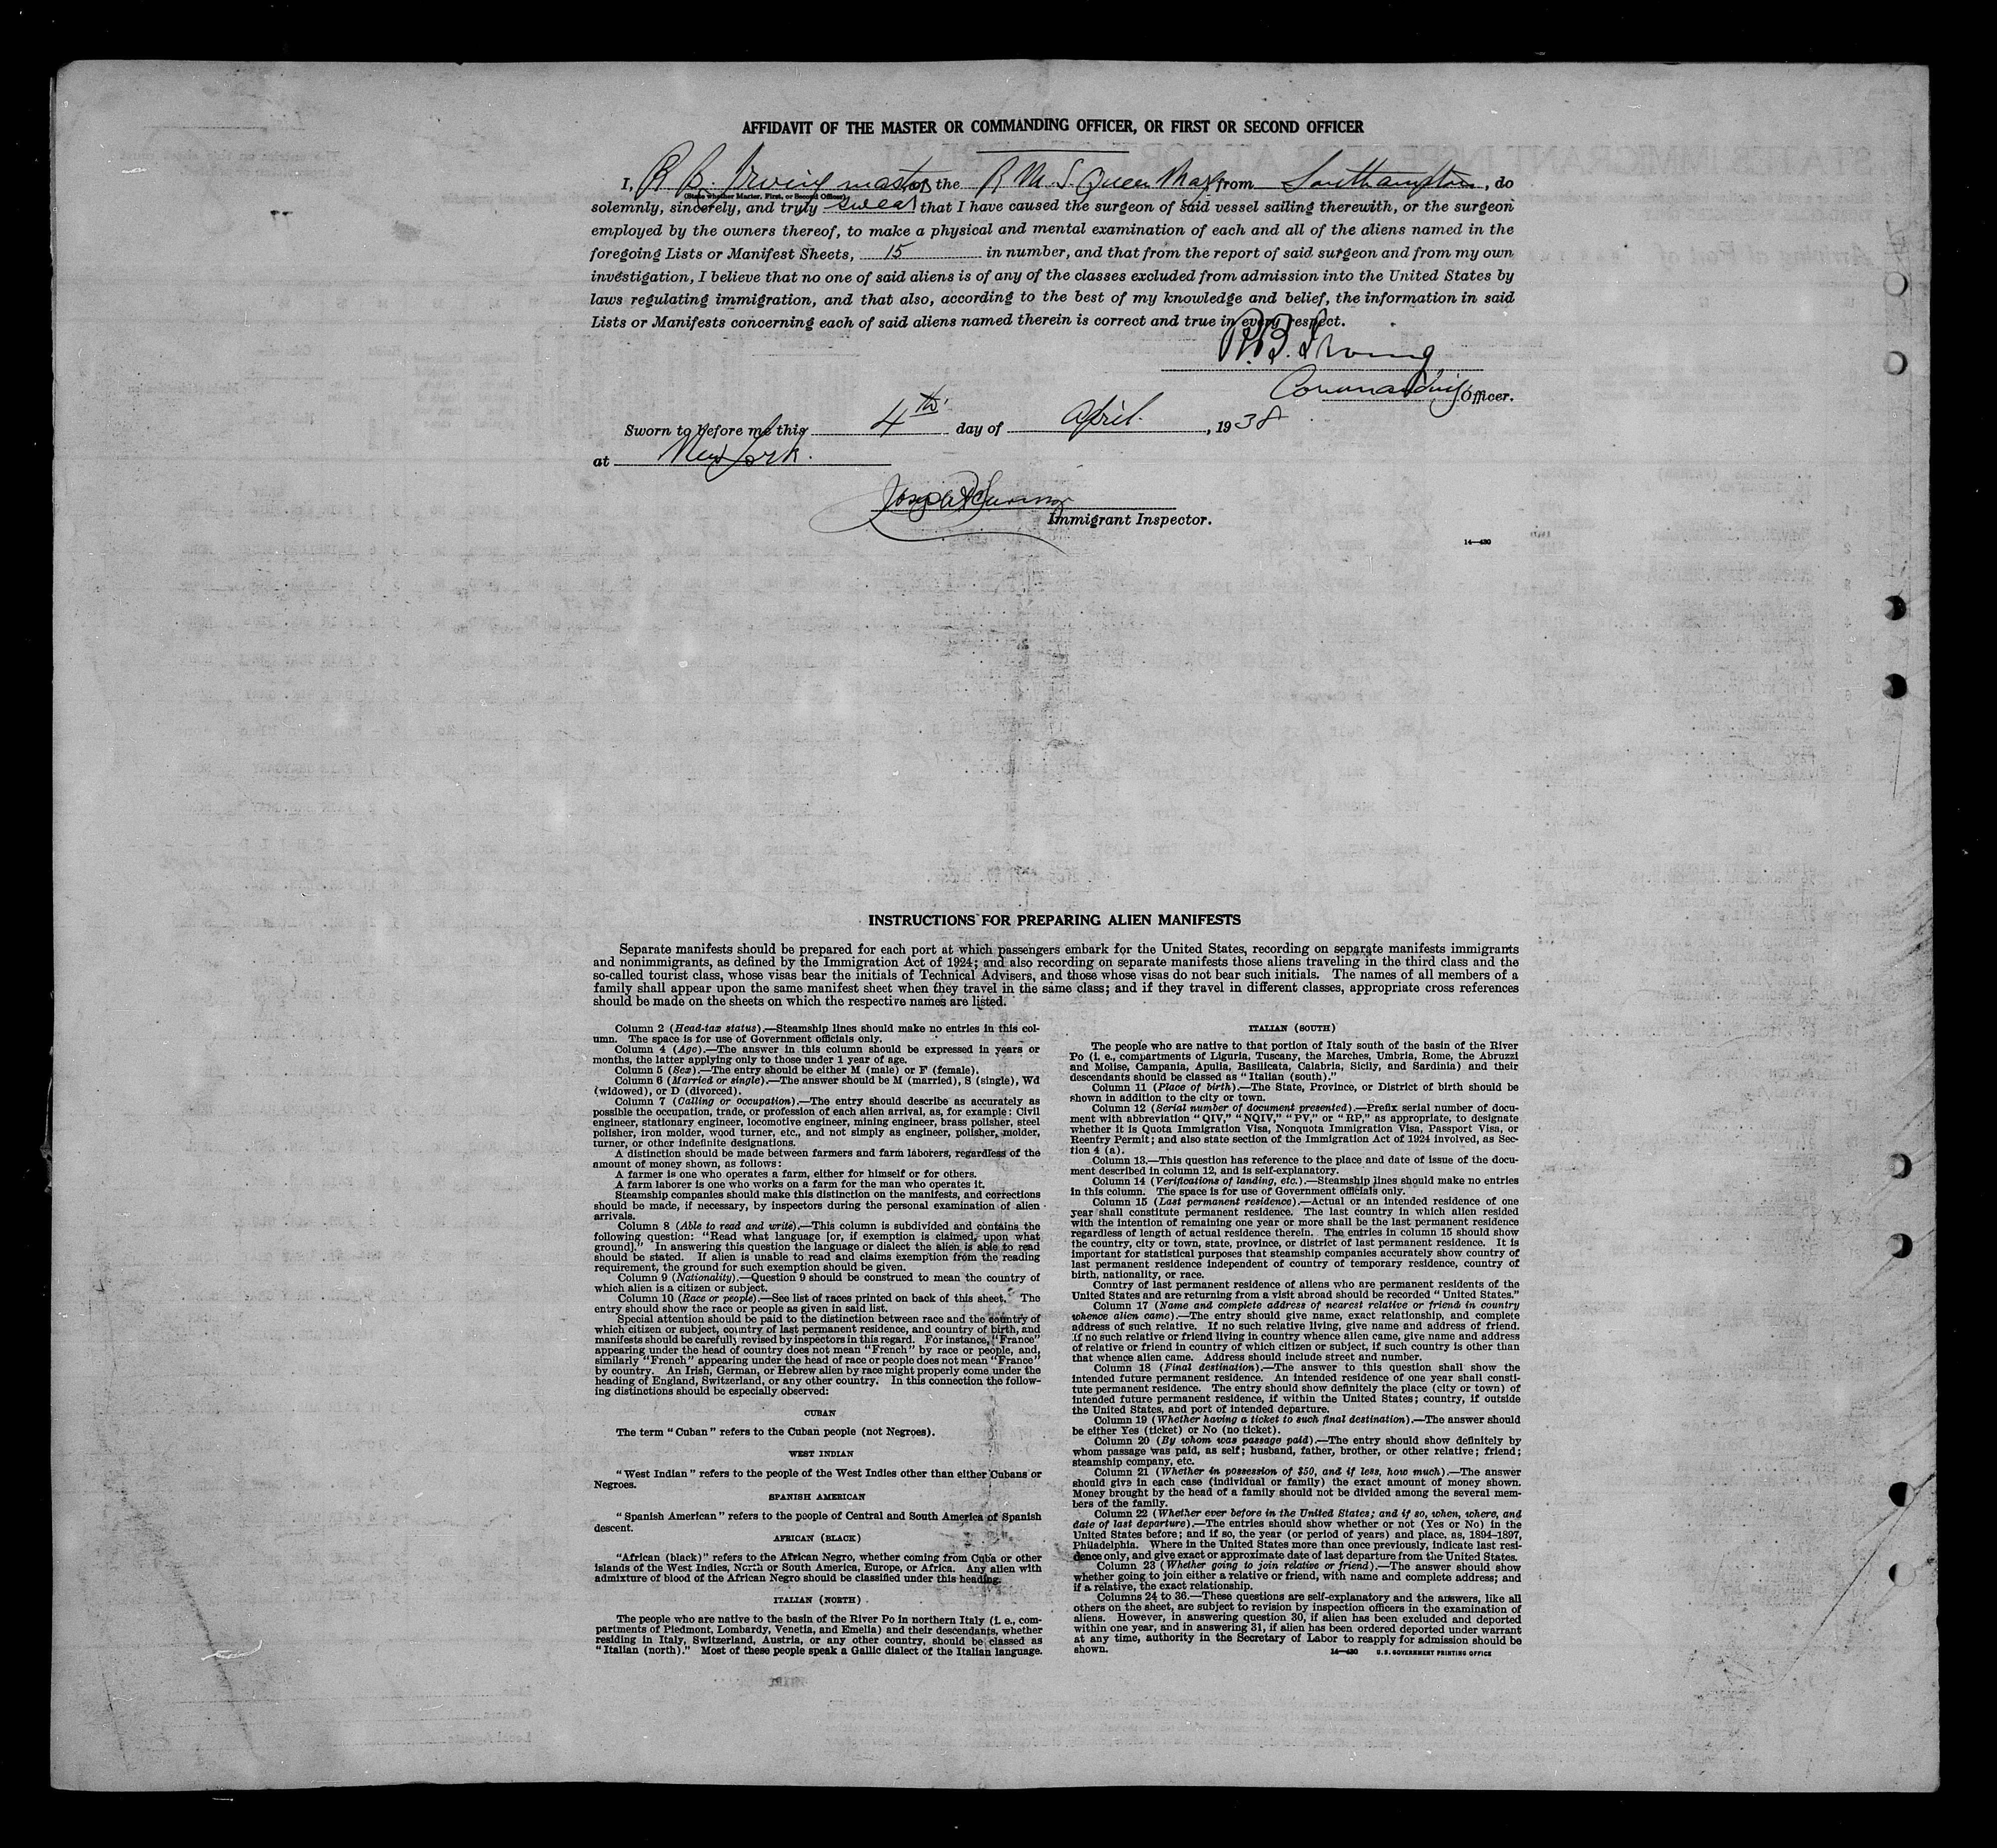 AFFIDAVIT OF THE MASTER OR COMMANDING OFFICER, OR FIRST OR SECOND OFFICER
I, R B. Irving master of the R M S. Queen Mary from Southampton, do
(State whether Master, First, or Second Officer)
solemnly, sincerely, and truly swear that I have caused the surgeon of said vessel sailing therewith, or the surgeon
employed by the owners thereof, to make a physical and mental examination of each and all of the aliens named in the
foregoing Lists or Manifest Sheets, 15 in number, and that from the report of said surgeon and from my own
investigation, I believe that no one of said aliens is of any of the classes excluded from admission into the United States by
laws regulating immigration, and that also, according to the best of my knowledge and belief, the information in said
Lists or Manifests concerning each of said aliens named therein is correct and true in every respect.
R.B. Irving
Commanding Officer.
Sworn to before me this 4th day of April, 1938
at New York.
Immigrant Inspector.
14—430
INSTRUCTIONS FOR PREPARING ALIEN MANIFESTS
Separate manifests should be prepared for each port at which passengers embark for the United States, recording on separate manifests immigrants
and nonimmigrants, as defined by the Immigration Act of 1924; and also recording on separate manifests those aliens traveling in the third class and the
so-called tourist class, whose visas bear the initials of Technical Advisers, and those whose visas do not bear such initials. The names of all members of a
family shall appear upon the same manifest sheet when they travel in the same class; and if they travel in different classes, appropriate cross references
should be made on the sheets on which the respective names are listed.
Column 2 (Head-tax status).—Steamship lines should make no entries in this col-
umn. The space is for use of Government officials only.
Column 4 (Age).—The answer in this column should be expressed in years or
months, the latter applying only to those under 1 year of age.
Column 5 (Sex).—The entry should be either M (male) or F (female).
Column 6 (Married or single).—The answer should be M (married), S (single), Wd
(widowed), or D (divorced).
Column 7 (Calling or occupation).—The entry should describe as accurately as
possible the occupation, trade, or profession of each alien arrival, as, for example: Civil
engineer, stationary engineer, locomotive engineer, mining engineer, brass polisher, steel
polisher, iron molder, wood turner, etc., and not simply as engineer, polisher, molder,
turner, or other indefinite designations.
A distinction should be made between farmers and farm laborers, regardless of the
amount of money shown, as follows:
A farmer is one who operates a farm, either for himself or for others.
A farm laborer is one who works on a farm for the man who operates it.
Steamship companies should make this distinction on the manifests, and corrections
should be made, if necessary, by inspectors during the personal examination of alien
arrivals.
Column 8 (Able to read and write).—This column is subdivided and contains the
following question: "Read what language [or, if exemption is claimed, upon what
ground]." In answering this question the language or dialect the alien is able to read
should be stated. If alien is unable to read and claims exemption from the reading
requirement, the ground for such exemption should be given.
Column 9 (Nationality).—Question 9 should be construed to mean the country of
which alien is a citizen or subject.
Column 10 (Race or people).—See list of races printed on back of this sheet. The
entry should show the race or people as given in said list.
Special attention should be paid to the distinction between race and the country of
which citizen or subject, country of last permanent residence, and country of birth, and
manifests should be carefully revised by inspectors in this regard. For instance, "France"
appearing under the head of country does not mean "French" by race or people, and,
similarly "French" appearing under the head of race or people does not mean "France"
by country. An Irish, German, or Hebrew alien by race might properly come under the
heading of England, Switzerland, or any other country. In this connection the follow-
ing distinctions should be especially observed:
CUBAN
The term "Cuban" refers to the Cuban people (not Negroes).
WEST INDIAN
"West Indian" refers to the people of the West Indies other than either Cubans or
Negroes.
SPANISH AMERICAN
"Spanish American" refers to the people of Central and South America of Spanish
descent.
AFRICAN (BLACK)
"African (black)" refers to the African Negro, whether coming from Cuba or other
islands of the West Indies, North or South America, Europe, or Africa. Any alien with
admixture of blood of the African Negro should be classified under this heading.
ITALIAN (NORTH)
The people who are native to the basin of the River Po in northern Italy (i. e., com-
partments of Piedmont, Lombardy, Venetia, and Emelia) and their descendants, whether
residing in Italy, Switzerland, Austria, or any other country, should be classed as
"Italian (north)." Most of these people speak a Gallic dialect of the Italian language.
ITALIAN (SOUTH)
The people who are native to that portion of Italy south of the basin of the River
Po (i. e., compartments of Liguria, Tuscany, the Marches, Umbria, Rome, the Abruzzi
and Molise, Campania, Apulia, Basilicata, Calabria, Sicily, and Sardinia) and their
descendants should be classed as "Italian (south)."
Column 11 (Place of birth).—The State, Province, or District of birth should be
shown in addition to the city or town.
Column 12 (Serial number of document presented).—Prefix serial number of docu-
ment with abbreviation "QIV," "NQIV," "PV," or "RP," as appropriate, to designate
whether it is Quota Immigration Visa, Nonquota Immigration Visa, Passport Visa, or
Reentry Permit; and also state section of the Immigration Act of 1924 involved, as Sec-
tion 4 (a).
Column 13.—This question has reference to the place and date of issue of the docu-
ment described in column 12, and is self-explanatory.
Column 14 (Verifications of landing, etc.).—Steamship lines should make no entries
in this column. The space is for use of Government officials only.
Column 15 (Last permanent residence).—Actual or an intended residence of one
year shall constitute permanent residence. The last country in which alien resided
with the intention of remaining one year or more shall be the last permanent residence
regardless of length of actual residence therein. The entries in column 15 should show
the country, city or town, state, province, or district of last permanent residence. It is
important for statistical purposes that steamship companies accurately show country of
last permanent residence independent of country of temporary residence, country of
birth, nationality, or race.
Country of last permanent residence of aliens who are permanent residents of the
United States and are returning from a visit abroad should be recorded "United States."
Column 17 (Name and complete address of nearest relative or friend in country
whence alien came).—The entry should give name, exact relationship, and complete
address of such relative. If no such relative living, give name and address of friend.
If no such relative or friend living in country whence alien came, give name and address
of relative or friend in country of which citizen or subject, if such country is other than
that whence alien came. Address should include street and number.
Column 18 (Final destination).—The answer to this question shall show the
intended future permanent residence. An intended residence of one year shall consti-
tute permanent residence. The entry should show definitely the place (city or town) of
intended future permanent residence, if within the United States; country, if outside
the United States, and port of intended departure.
Column 19 (Whether having a ticket to such final destination).—The answer should
be either Yes (ticket) or No (no ticket).
Column 20 (By whom was passage paid).—The entry should show definitely by
whom passage was paid, as self; husband, father, brother, or other relative; friend;
steamship company, etc.
Column 21 (Whether in possession of $50, and if less, how much).—The answer
should give in each case (individual or family) the exact amount of money shown.
Money brought by the head of a family should not be divided among the several mem-
bers of the family.
Column 22 (Whether ever before in the United States; and if so, when, where, and
date of last departure).—The entries should show whether or not (Yes or No) in the
United States before; and if so, the year (or period of years) and place, as, 1894-1897,
Philadelphia. Where in the United States more than once previously, indicate last resi-
dence only, and give exact or approximate date of last departure from the United States.
Column 23 (Whether going to join relative or friend).—The answer should show
whether going to join either a relative or friend, with name and complete address; and
if a relative, the exact relationship.
Columns 24 to 36.—These questions are self-explanatory and the answers, like all
others on the sheet, are subject to revision by inspection officers in the examination of
aliens. However, in answering question 30, if alien has been excluded and deported
within one year, and in answering 31, if alien has been ordered deported under warrant
at any time, authority in the Secretary of Labor to reapply for admission should be
shown.
14—430 U.S. GOVERNMENT PRINTING OFFICE